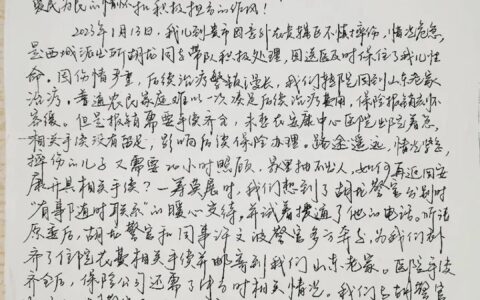 爱民为民的情怀和积极担当的作风！
2023年1月13日，我儿到贵市因意外在贵辖区不慎摔伤，情况危急，
是西城派出所胡的同志带队积极处理，因送医及时保住了我儿性
命。因伤情严重，后续治疗繁琐漫长，我们转院回到山东老家
治疗。普通农民家庭难以一次次是后续治疗费用，保险报销无怀
容缓。但是报销需要手续齐全，未在安康中心医院出院着急，
相关手续没有带足，影响后续保险办理。路途遥远，情况紧急，
摔伤的儿子又需要24小时照顾，家里抽不出人，如何再返回安
康开具相关手续？一筹莫展时，我们想到了胡警官分别时
“有事随时联系”的暖心交待，并试着拨通了他的电话。听说
原委后，胡警官和同事许文波警官多方奔走，为我们补
齐了住院大致相关手续并邮寄到我们山东老家。医院手续
齐全后，保险公司还需了解当时相关情况。我们与胡警官